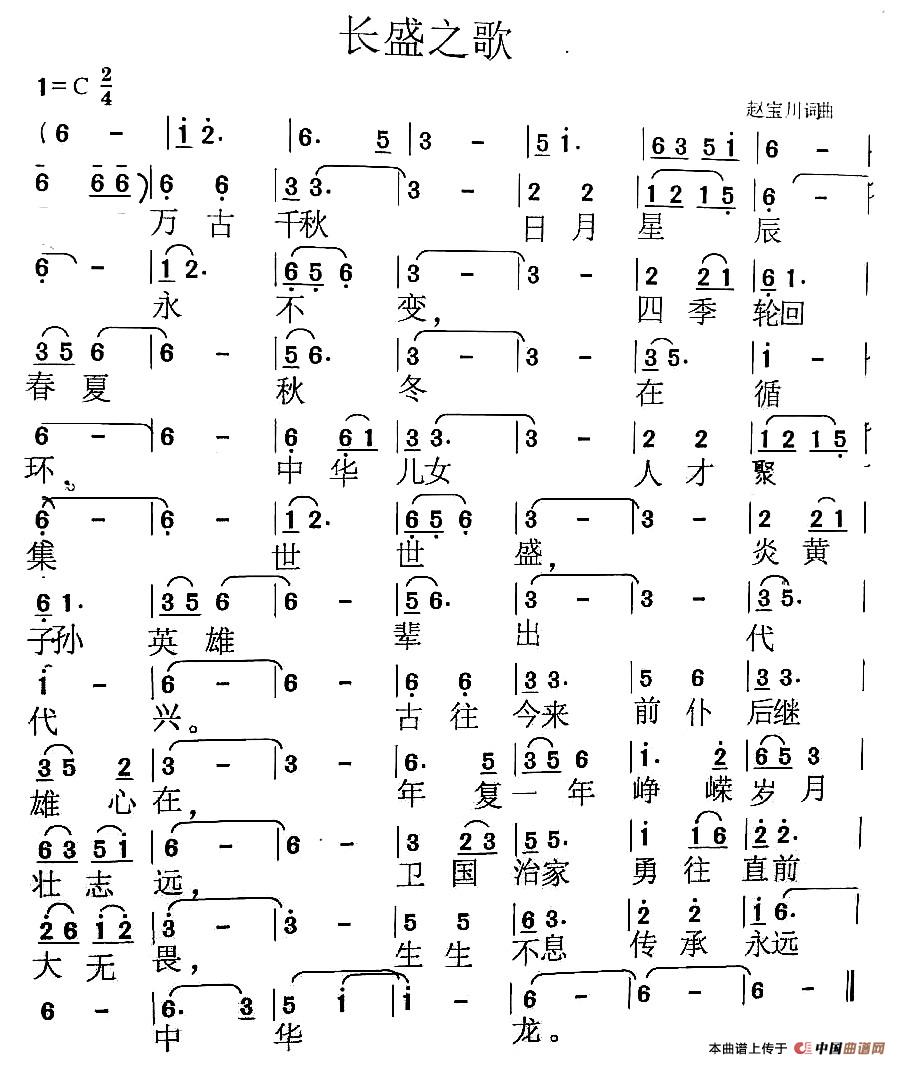 长盛之歌
1=C 2/4
赵宝川词曲
(6 - | 1 2. | 6. 5 | 3 - | 5 1. | 6 3 5 1 | 6 -
6 6 6) | 6 6 | 3 3. | 3 - | 2 2 | 1 2 1 5 | 6 -
万 古 千秋 日 月 星 辰
6 - | 1 2. | 6 5 6 | 3 - | 3 - | 2 2 1 | 6 1.
永 不 变, 四 季 轮回
3 5 6 | 6 - | 5 6. | 3 - | 3 - | 3 5. | 1 -
春 夏 秋 冬 在 循
6 - | 6 - | 6 6 1 | 3 3. | 3 - | 2 2 | 1 2 1 5
环。 中 华 儿女 人 才 聚
6 - | 6 - | 1 2. | 6 5 6 | 3 - | 3 - | 2 2 1
集 世 世 盛, 炎 黄
6 1. | 3 5 6 | 6 - | 5 6. | 3 - | 3 - | 3 5.
子孙 英 雄 辈 出 代
1 - | 6 - | 6 - | 6 6 | 3 3. | 5 6 | 3 3. |
代 兴。 古 往 今来 前 仆 后继
3 5 2 | 3 - | 3 - | 6. 5 | 3 5 6 | 1. 2 | 6 5 3 |
雄 心 在, 年 复 一 年 峥 嵘 岁 月
6 3 5 1 | 6 - | 6 - | 3 2 3 | 5 5. | 1 1 6 | 2 2. |
壮 志 远, 卫 国 治家 勇 往 直前
2 6 1 2 | 3 - | 3 - | 5 5 | 6 3. | 2 2 | 1 6. |
大 无 畏, 生 生 不息 传 承 永远
6 - | 6. 3 | 5 1 | 1 - | 6 - | 6 - | 6 - ‖
中 华 龙。
本曲谱上传于 中国曲谱网